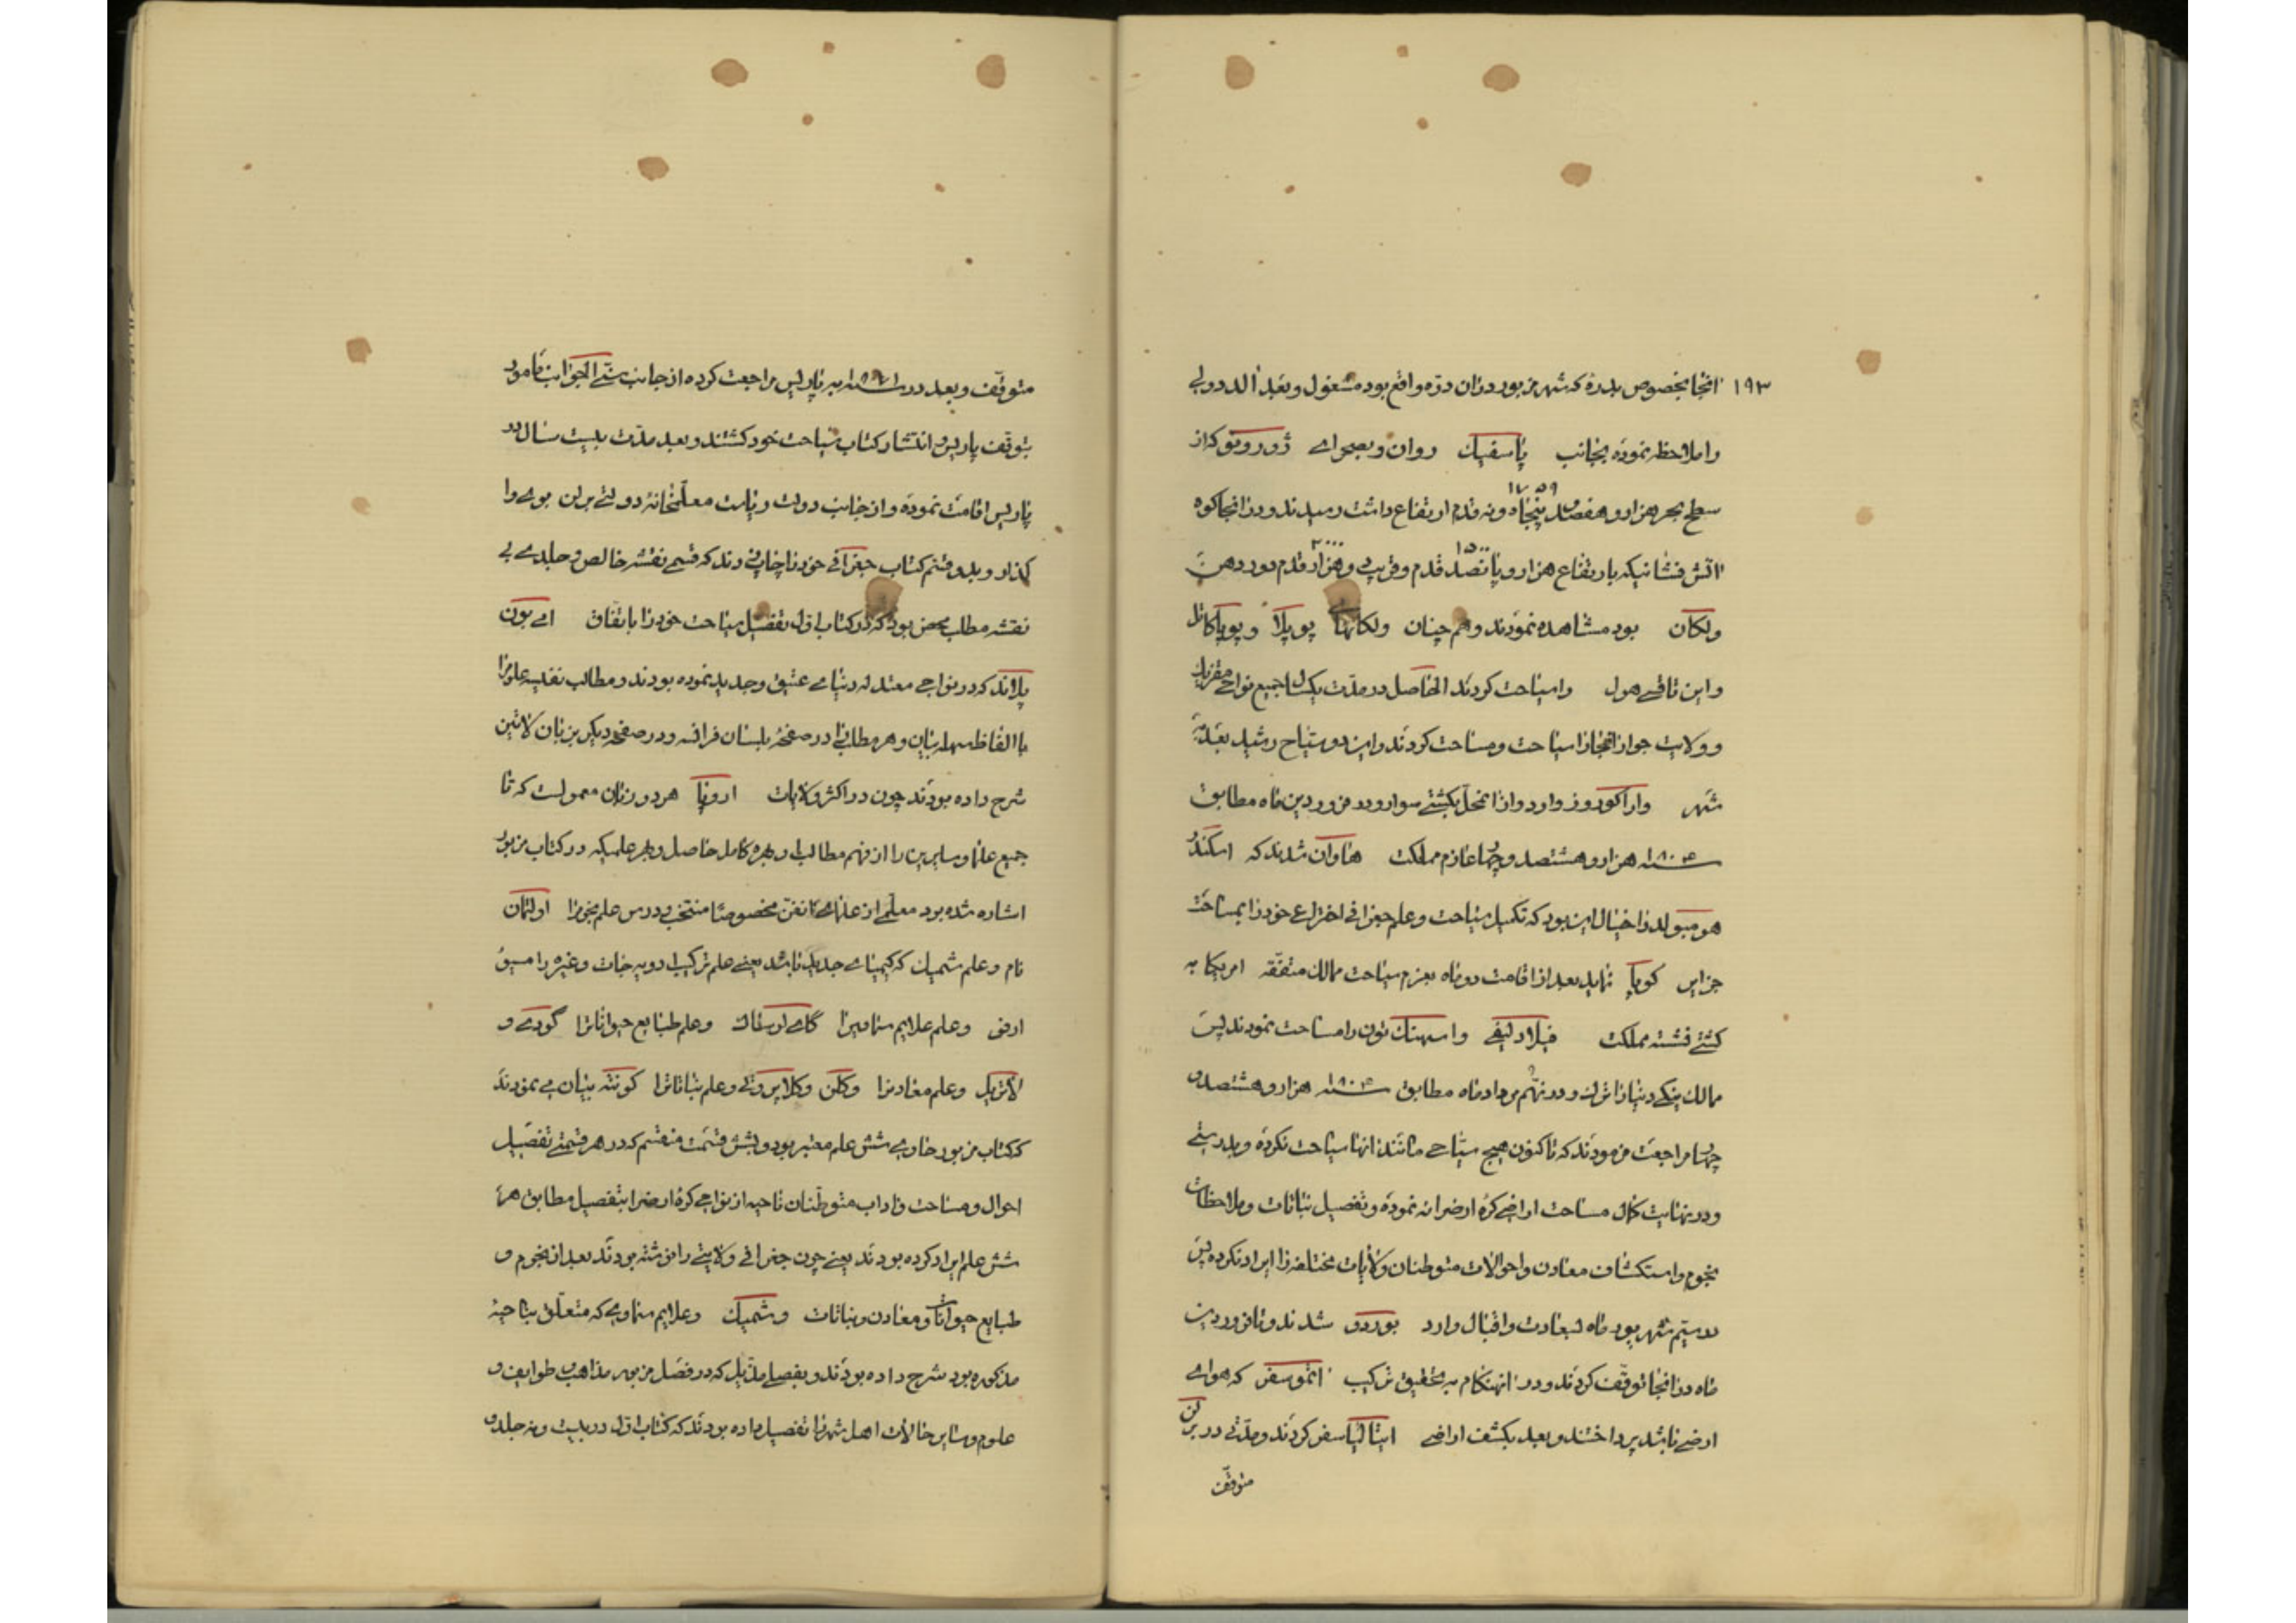 ۱۹۳
انجا بخصوص بدره که شهر مزبور در ان دره واقع بود مشغول و بعد
را ملاحظه نموده بجانب پاسفیک روان و بصحرای ژورویو که از
۱۷۵۹
سطح بحر هزار و هفصد پنجاه و نه قدم ارتفاع داشت رسیدند و در انجا کوه
۱۵۰۰ ۲۰۰۰
اتش فشانیکه بارتفاع هزار و پانصد قدم و قریب دو هزار قدم دور دهن
ولکان بود مشاهده نمودند و هم چنان ولکانهای پوپلا و پوپاکاتل
و این تاقسی هول را سیاحت کردند الحاصل در مدت یکسال جمیع نواحی
و ولایت جوار انجا را سیاحت و مساحت کردند و این دو سیاح رشید
شهر واراکوروز وارد و از انمحل بکشتی سوار و در فروردین ماه مطابق
۱۸۰۴ سنه هزار و هشتصد و چهار عازم مملکت هاوان شدند که اسکندر
هومبولد را خیال این بود که تکمیل سیاحت و علم جغرافی اختراع خود را بمساحت
جزایر کوبا نماید بعد از اقامت دو ماه بعزم سیاحت ممالک متفقه امریکا به
کشتی نشسته مملکت فیلادلیفی واسهنک تون را مساحت نمودند پس
ممالک ینکی دنیا را ترک و در نهم مرداد ماه مطابق ۱۸۰۴ سنه هزار و هشتصد و
چهار مراجعت فرمودند که تا کنون هیچ سیاحی مانند انها سیاحت نکرده و بدرستی
و در نهایت کمال مساحت اراضی کره ارض را نه نموده و تفصیل نباتات و ملاحظات
نجوم و استکشاف معادن و احوالات متوطنان ولایات مختلفه را ایراد نکرده پس
در سیم شهریور ماه بسعادت و اقبال وارد بوردو شدند و تا فروردین
ماه در انجا توقف کردند و در انهنکام به تحقیق ترکیب اتموسفر که هوای
ارضی باشد پرداختند و بعد بکشف اراضی ایتالیا سفر کردند و مدتی در برلن
متوقف
متوقف و بعد در سنه به پاریس مراجعت کرده از جانب سنی الجوانب مامور
بتوقف پاریس و انتشار کتاب سیاحت خود کشتند و بعد مدت بیست سال در
پاریس اقامت نموده و از جانب دولت ریاست معلمخانه دولتی برلن بوی وا
کذار و بدو قسم کتاب جغرافی خود را چاپ زدند که قسمی نقشه خالص و جلدی بی
نقشه مطلب محض بود که در کتاب اول تفصیل سیاحت خود را باتفاق امی بون
پلاند که در نواحی معتدله دنیای عتیق و جدید نموده بودند و مطالب نفیسه علوم را
با الفاظ سهله بیان و هر مطلبی را در صفحهٔ بلسان فرانسه و در صفحه دیکر بزبان لاتین
شرح داده بودند چون در اکثر ولایات اروپا هر دو زبان معمولست که تا
جمیع علما و سایرین را از فهم مطالب او بهره کامل حاصل و بهر علمیکه در کتاب مزبور
اشاره شده بود معلمی از علمای انفن مخصوصا منتخب و درس علم نجوم را اولتمان
نام و علم شمیک که کیمیای جدید باشد یعنی علم ترکیب ادویه جات و غیره را مسیو
ارنی و علم علایم سماویرا کای لوساک و علم طبایع حیوانات را کودی و
لاتریل و علم معادنرا وکلن و کلاپروتی و علم نباتات را کونته بیان می نمودند
که کتاب مزبور حاوی شش علم معتبر بود و بشش قسمت منقسم که در هر قسمتی تفصیل
احوال و مساحت و اداب متوطنان ناحیه از نواحی کره ارض را بتفصیل مطابق هر
شش علم ایراد کرده بودند یعنی چون جغرافی ولایتی را نوشته بودند بعد از نجوم و
طبایع حیوانات و معادن و نباتات و شمیک و علایم سماویی که متعلق بناحیهٔ
مذکوره بود شرح داده بودند و بفصلی مذیل که در فصل مزبور مذاهب و طوایف و
علوم و سایر حالات اهل شهر را تفصیل داده بودند که کتاب اول در بیست و نه جلد و